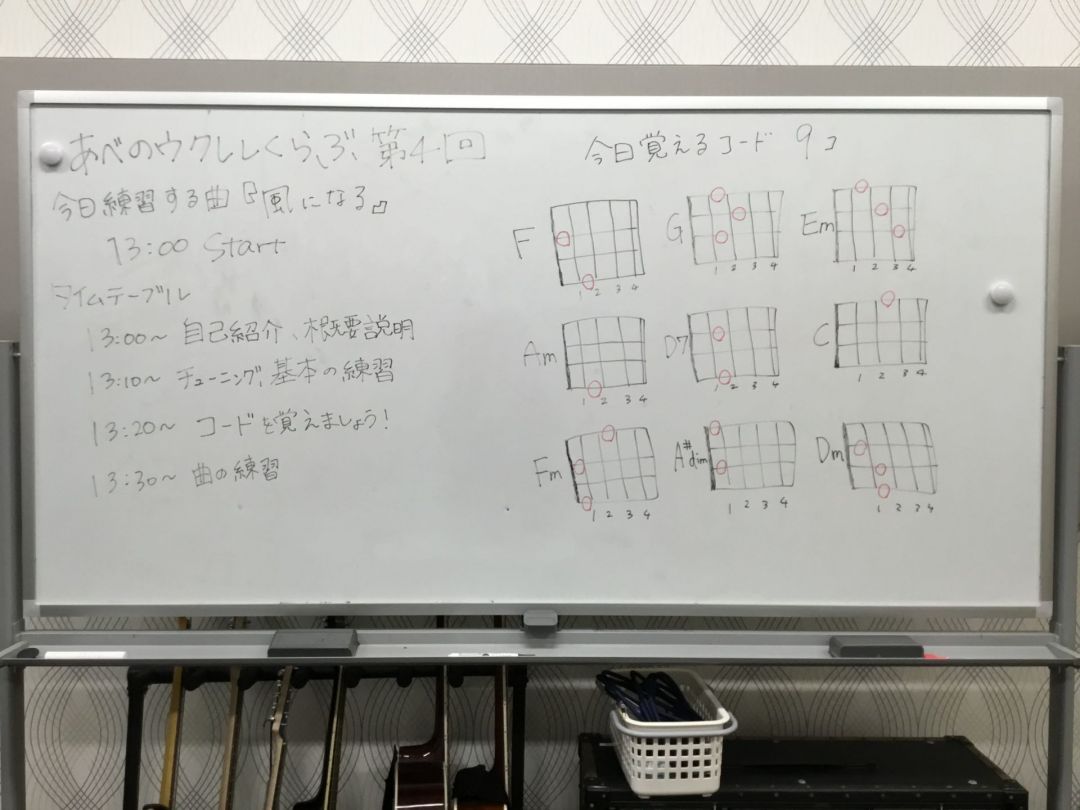 あべのウクレレくらぶ 第4回
今日練習する曲『風になる』
13:00 Start
タイムテーブル
13:00〜 自己紹介、概要説明
13:10〜 チューニング、基本の練習
13:20〜 コードを覚えましょう!
13:30〜 曲の練習
今日覚えるコード 9コ
F
1 2 3 4
G
1 2 3 4
Em
1 2 3 4
Am
1 2 3 4
D7
1 2 3 4
C
1 2 3 4
Fm
1 2 3 4
A#dim
1 2 3 4
Dm
1 2 3 4